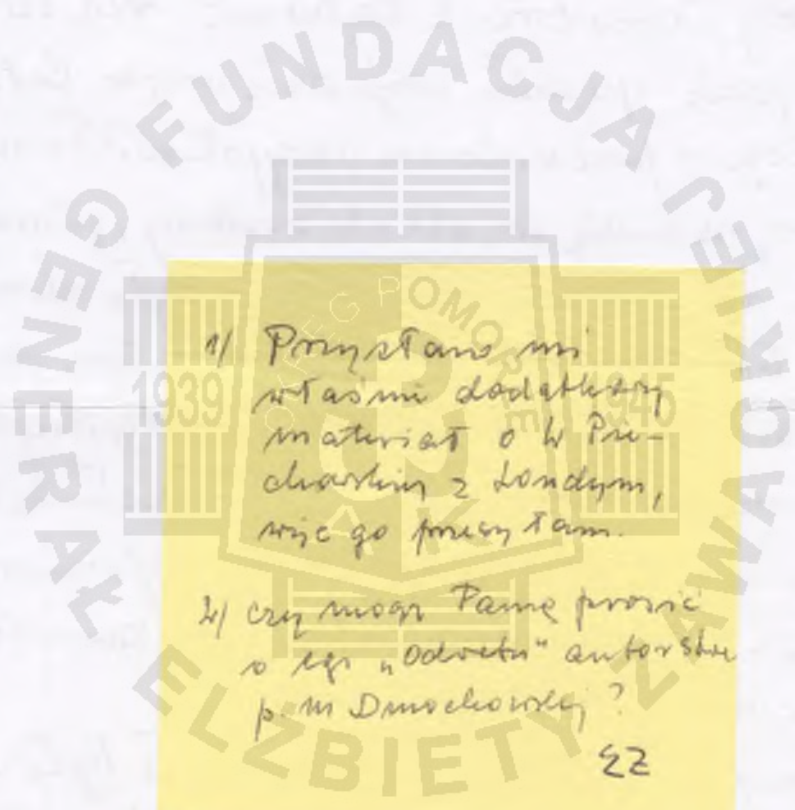 FUNDACJA
GENERAŁ ELŻBIETY ZAWACKIEJ
OKRĘG POMORZE
1939 1945
AK
1/ Przysłano mi
właśnie dodatkowy
materiał o W Pie-
chowskiej z Londynu,
więc go przesyłam.
2/ czy mogę Panią prosić
o egz „Odwetu" autorstwa
p. M Dmochowskiej?
EZ